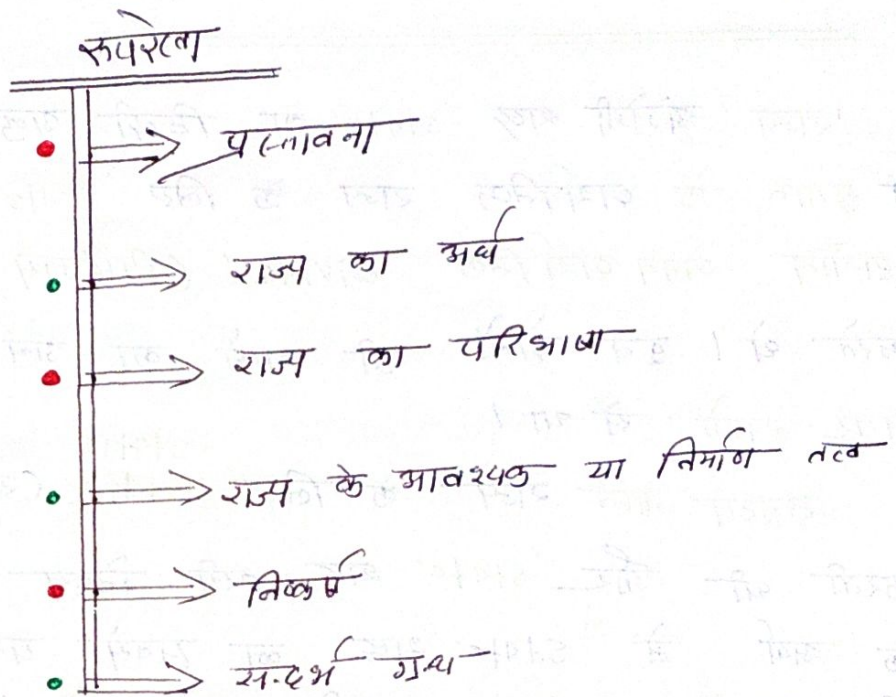 रुपरेखा
प्रस्तावना
राज्य का अर्थ
राज्य का परिभाषा
राज्य के आवश्यक या निर्माण तत्व
निष्कर्ष
सन्दर्भ ग्रन्थ